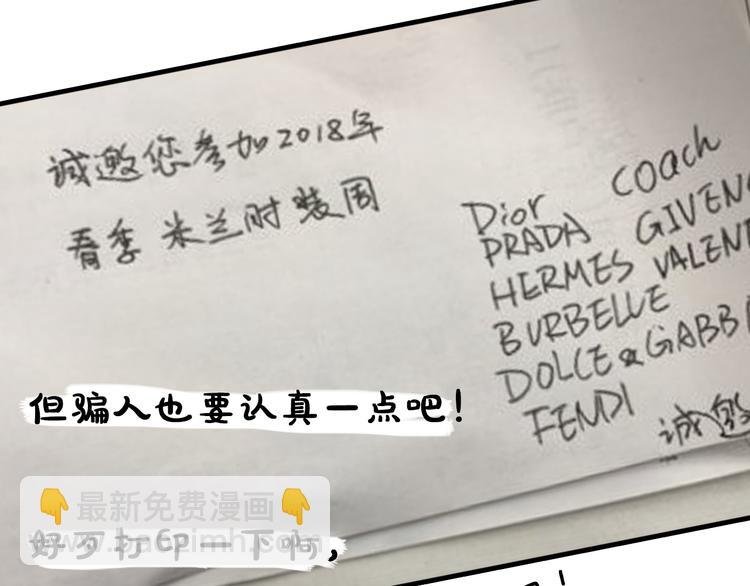 诚邀您参加2018年
春季 米兰时装周
Dior coach
PRADA GIVEN
HERMES VALENT
BURBELLE
DOLCE & GABBA
FENDI
诚邀
但骗人也要认真一点吧!
👇最新免费漫画👇
好歹打印一下啊,